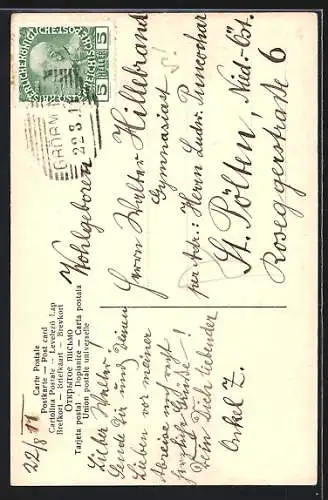 22/8 11
Carte Postale
Postkarte — Post card
Cartolina Postale — Levelező Lap
Brefkort — Briefkaart — Brevkort
Открытое письмо
Tarjeta postal — Dopisnice — Carta postala
Union postale universelle
Lieber Walter!
Sende Dir und Deinen
Lieben vor meiner
Abreise noch recht
herzliche Grüße!
Dein Dich liebender
Onkel Z.
5 HELLER 5
22.8.1
Wohlgeboren
Herrn Walter Hillebrand
Gymnasiast
per Adr.: Herrn Ludw.
St. Pölten, Nied.-Öst.
Roseggerstraße 6